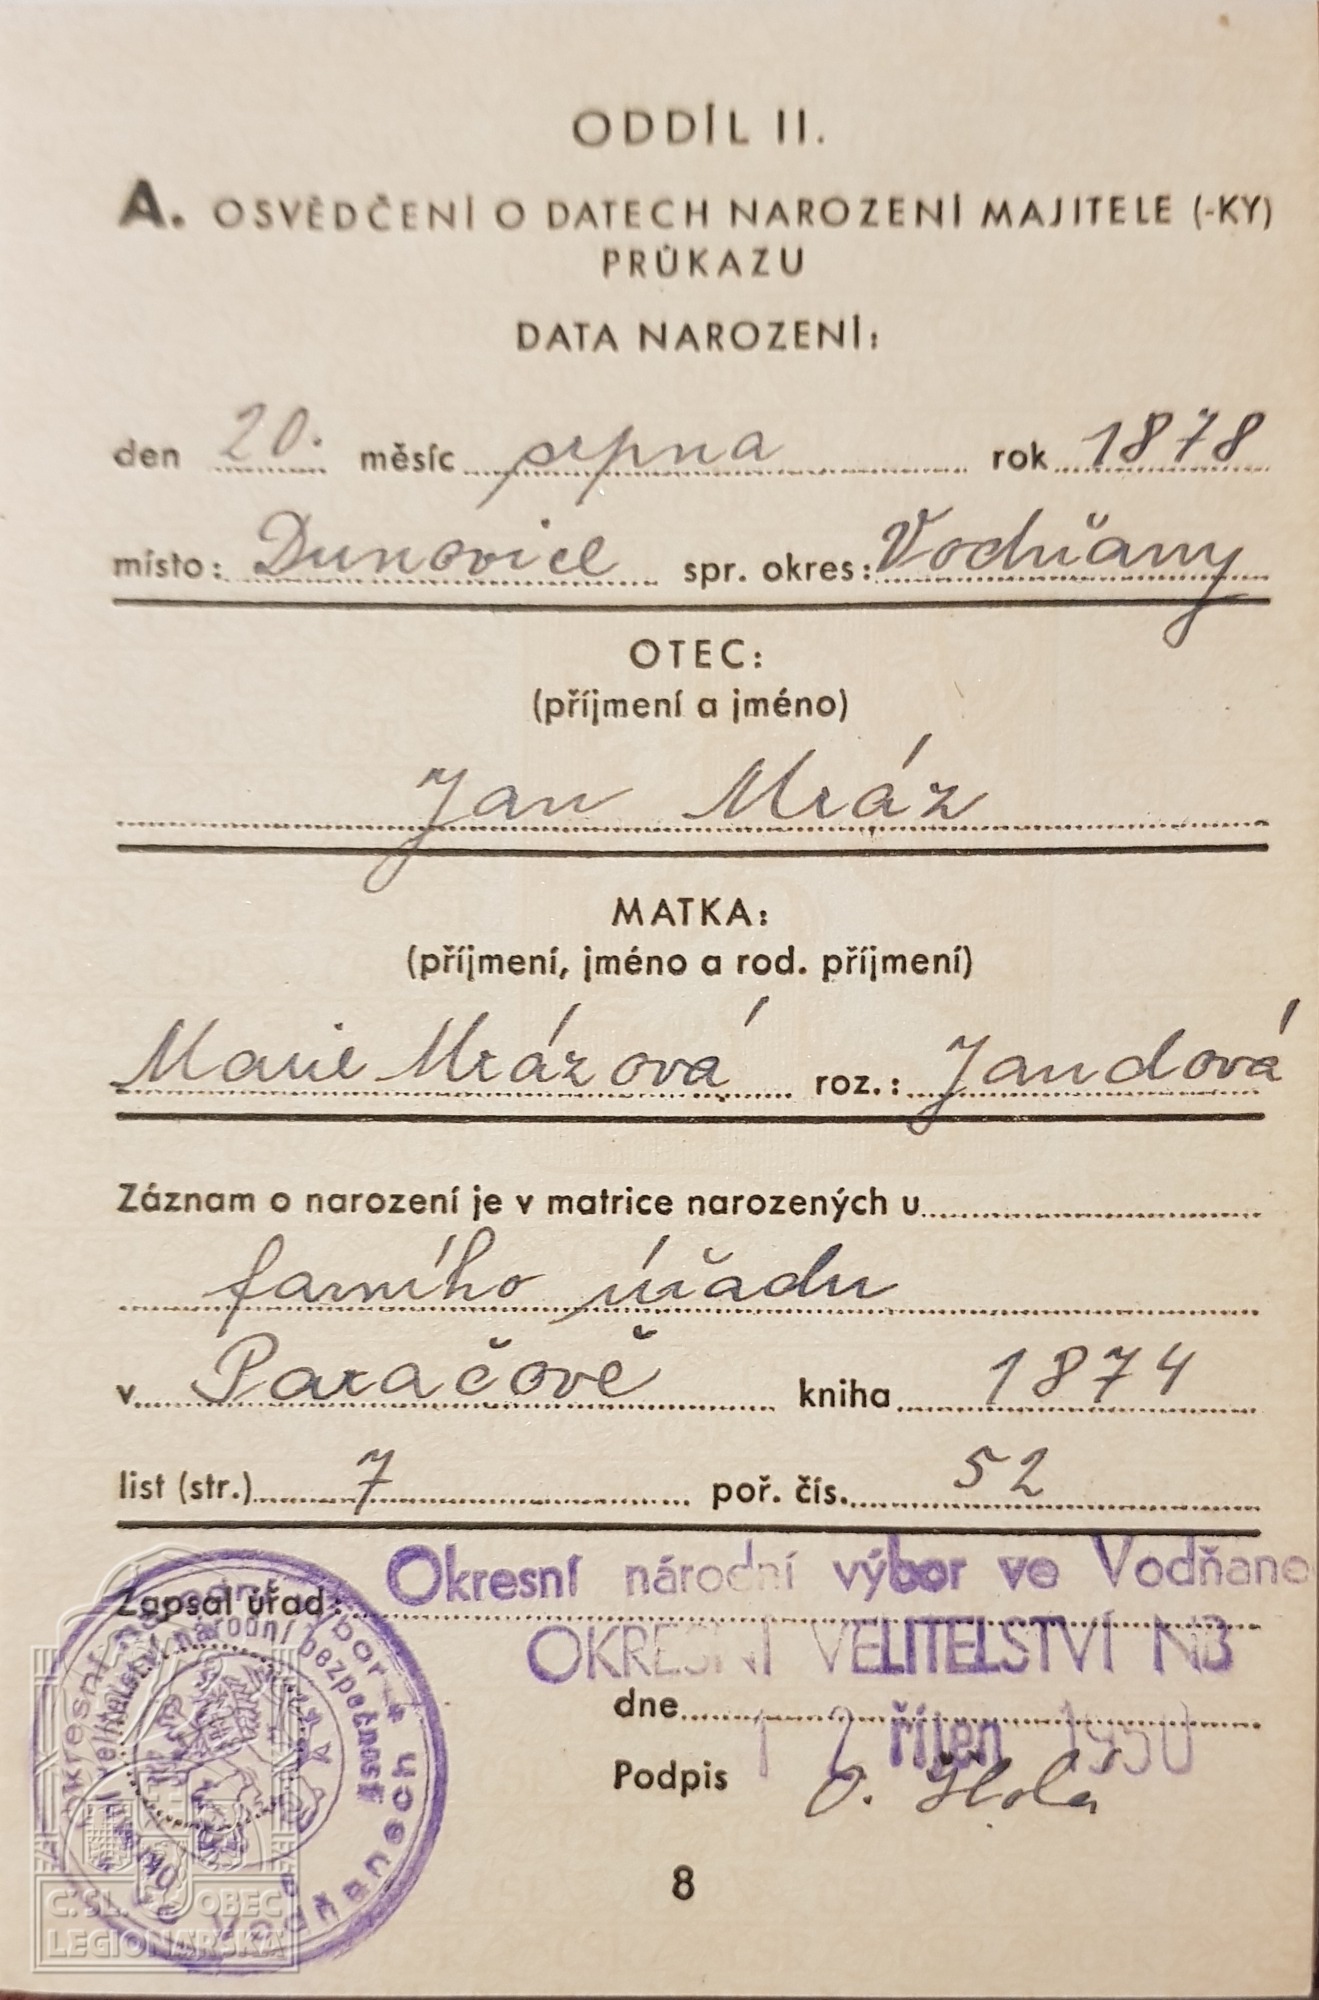 ODDÍL II.
A. OSVĚDČENÍ O DATECH NAROZENÍ MAJITELE (-KY)
PRŮKAZU
DATA NAROZENÍ:
den 20. měsíc srpna rok 1878
místo: Dunovice spr. okres: Vodňany
OTEC:
(příjmení a jméno)
Jan Mráz
MATKA:
(příjmení, jméno a rod. příjmení)
Marie Mrázová roz.: Jandová
Záznam o narození je v matrice narozených u
farního úřadu
v Paračově kniha 1874
list (str.) 7 poř. čís. 52
Zapsal úřad: Okresní národní výbor ve Vodňane
OKRESNÍ VELITELSTVÍ NB
dne 12 říjen 1950
Podpis
8
národní bezpečnosti
Vodňanech
ČSL. OBEC
LEGIONÁŘSKÁ